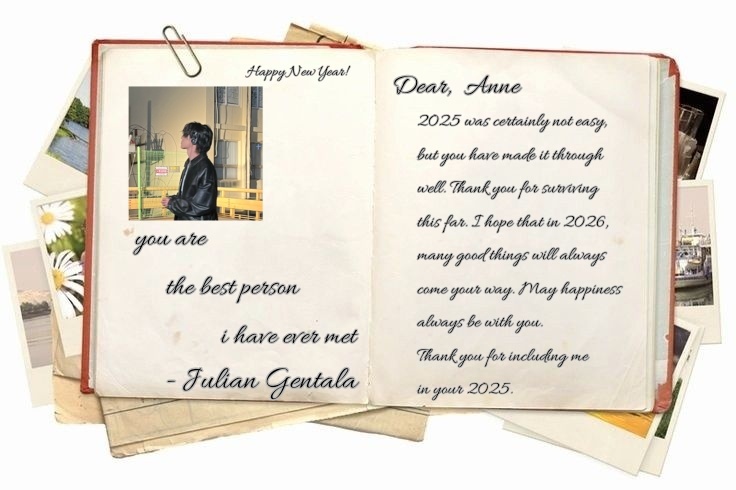 Happy New Year!
you are
the best person
i have ever met
- Julian Gentala
Dear, Anne
2025 was certainly not easy,
but you have made it through
well. Thank you for surviving
this far. I hope that in 2026,
many good things will always
come your way. May happiness
always be with you.
Thank you for including me
in your 2025.